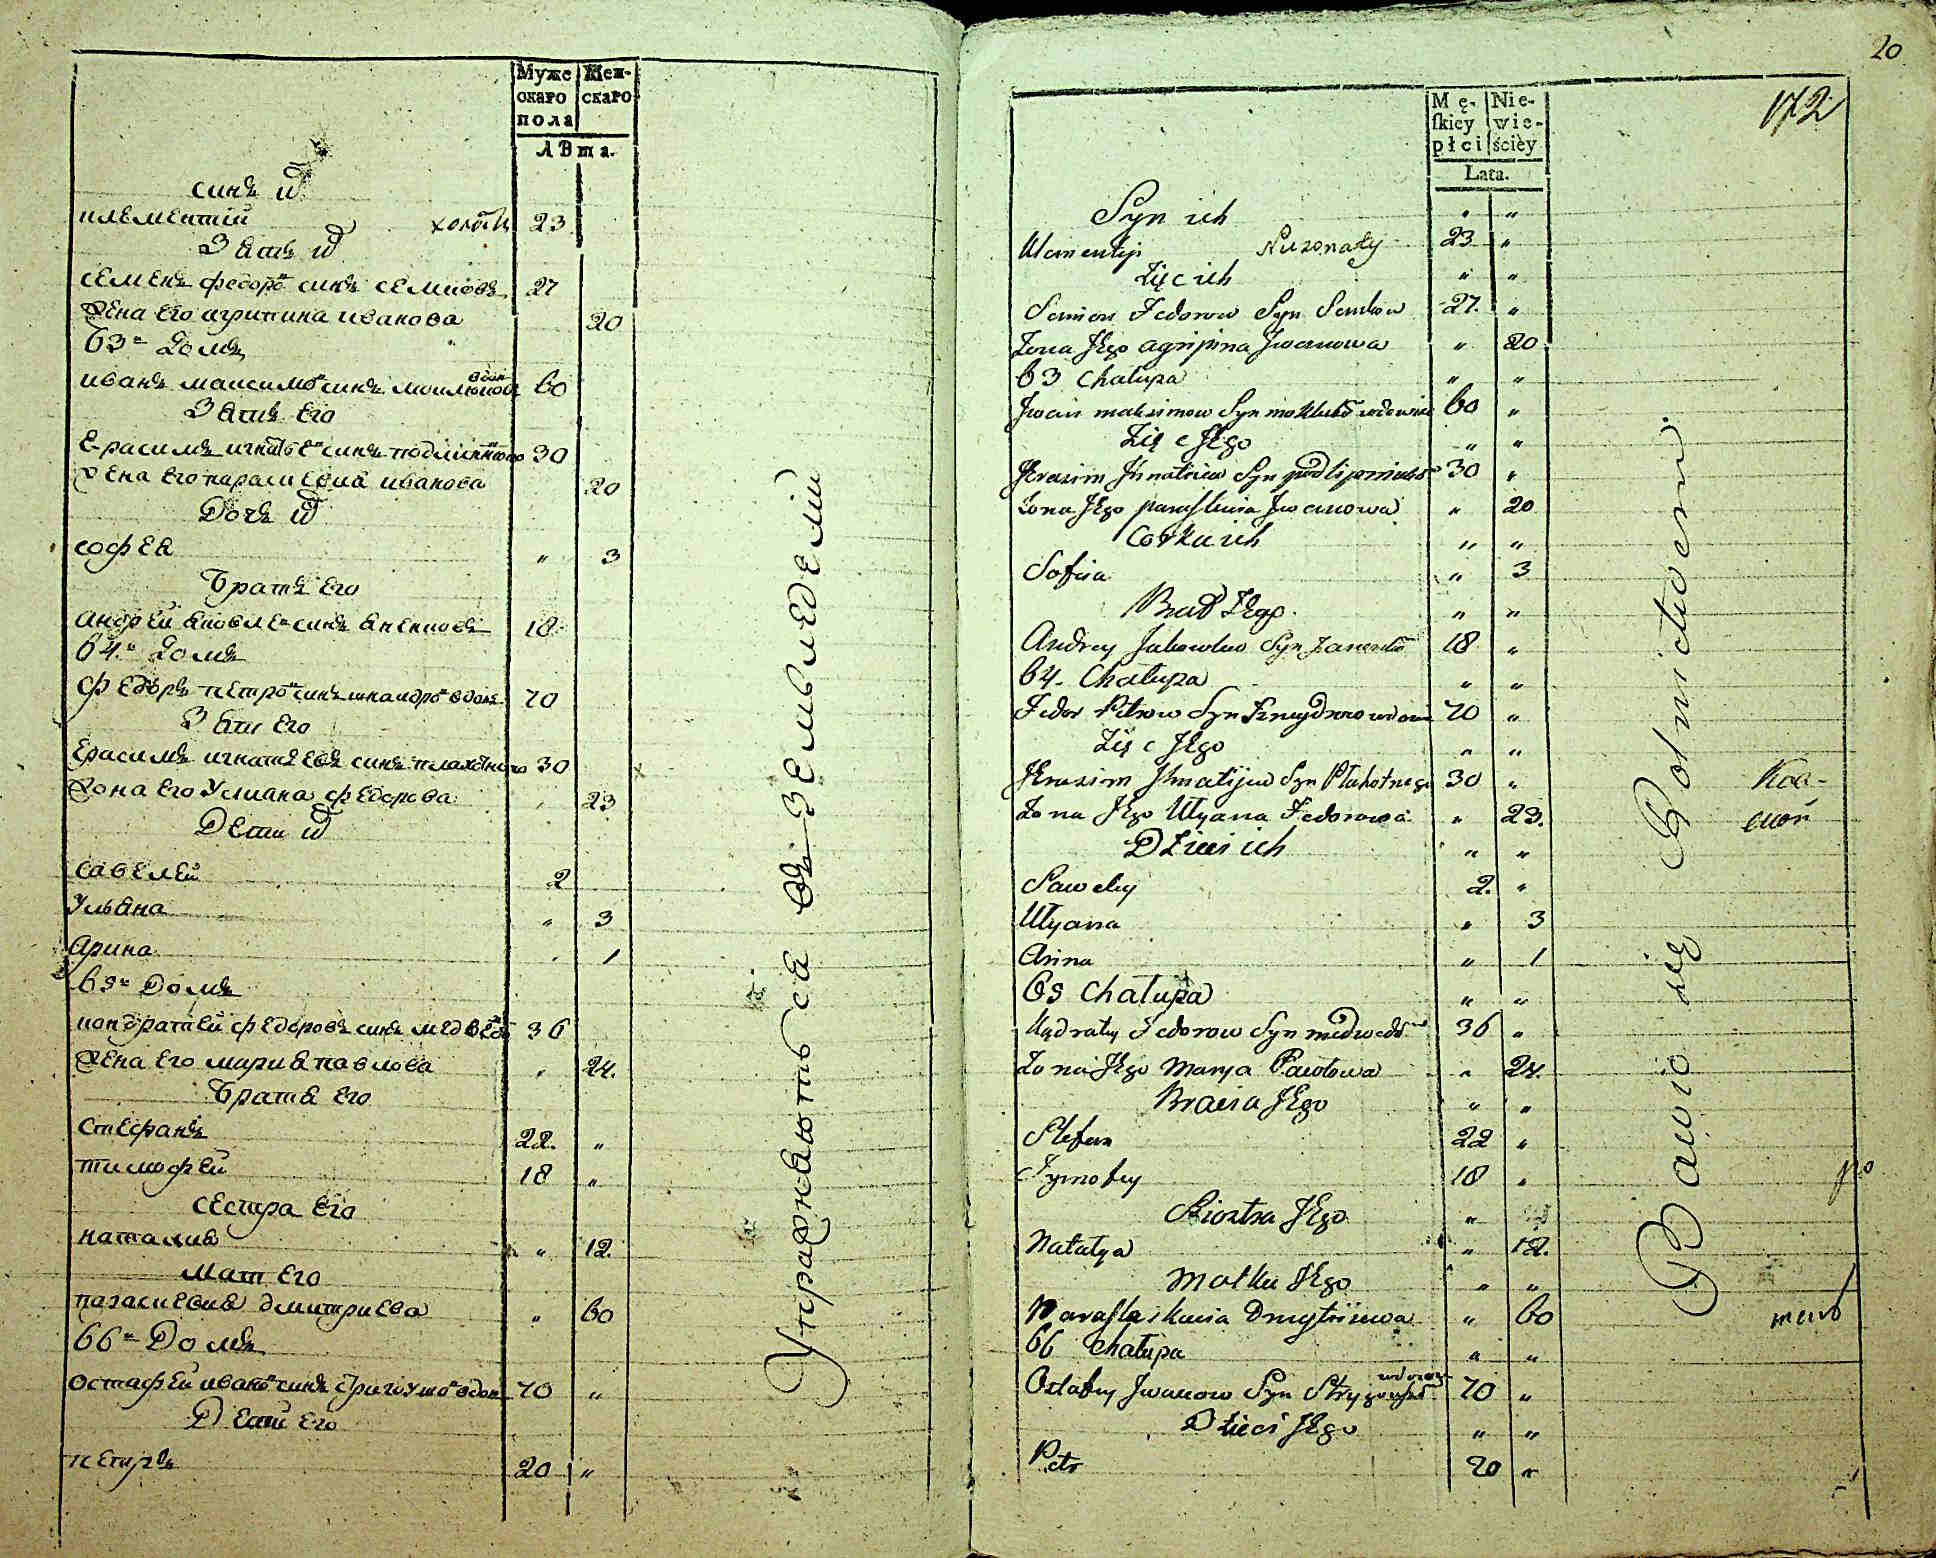 Муже
скаго
пола
Жен-
скаго
ЛѢта.
синъ их
клементий холост 23
Зать их
семенъ федоров синъ семковъ 27
Жена его агрипина иванова 20
63 Домъ
иванъ максимов синъ вдов 60
Зать его
Ерасимъ игнатьев синъ 30
Жена его параскевия иванова 20
Дочь их
софея " 3
Братъ его
андрей яковлев синъ 18
64 Домъ
федоръ петров синъ вдовъ 70
Зать его
Ерасимъ игнатьевъ синъ плахотного 30
Жона его Улиана федорова 23
Дети их
савелей 2
Ульяна " 3
Арина 1
65 Домъ
кондратей федоровъ синъ медведь 36
Жена его мария павлова 24.
Братя его
стефанъ 22. "
тимофей 18 "
сестра его
наталия " 12
мат его
параскевия дмитриева " 60
66 Домъ
остафей иванов синъ вдов 70 "
Дети его
петръ 20 "
Упражняються въ земледелии
20
172
Mę-
skiey
płci
Nie-
wie-
ściéy
Lata.
Syn ich " "
Klementyi Nieżonaty 23 "
Zięc ich " "
Semion Fedorow Syn Semkow 27. "
Żona Jego agripina Jwanowa " 20
63 Chałupa " "
Jwan maksimow Syn 60 "
Zięc Jego " "
Jerasim Jhnatiew Syn 30 "
Żona Jego Jwanowa " 20
Corka ich " "
Sofiia " 3
Brat Jego " "
Andrey Jakowlew Syn 18 "
64. Chałupa " "
Fedor Petrow Syn 70 "
Zięc Jego " "
Jerasim Jhnatijew Syn Płachotnego 30 "
Żona Jego Ulyana Fedorowa " 23.
Dzieci ich " "
Sawely 2. "
Ulyana " 3
Arina " 1
65 Chałupa " "
Kądraty Fedorow Syn 36 "
Żona Jego Marya Pawłowa " 24.
Bracia Jego " "
Stefan 22 "
Tymofey 18 "
Siostra Jego "
Natalya " 12.
Matka Jego " "
Dmytriiewa " 60
66 Chałupa " "
Ostafey Jwanow Syn 70 "
Dzieci Jego " "
Petr 20 "
Bawio się Rolnictwem.
по